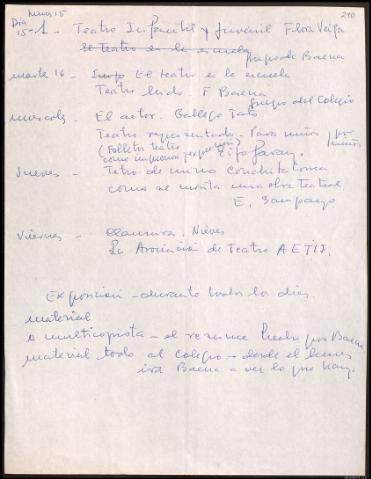 lunes 15
210
Dia
15-1 - Teatro Infantil y Juvenil Flora Veiga
el teatro en la escuela
grupo de Baena
marte 16 - El teatro e la escuela
Teatro leido F Baena
grupo del Colegio
miercoles - El actor. Gallego Toto
Teatro representado - Para niños por niños
(Folletos teatro
como
Jueves - Teatro de mimo
como se monta una obra teatral
E. Sampayo
Viernes - Clausura. Nieves
La Asociación de Teatro AETIJ.
Exposición - durante todos los dias
material
a multicopista - el resumen hecho por Baena
material todo al Colegio - desde el lunes
ira Baena a ver lo que hay.